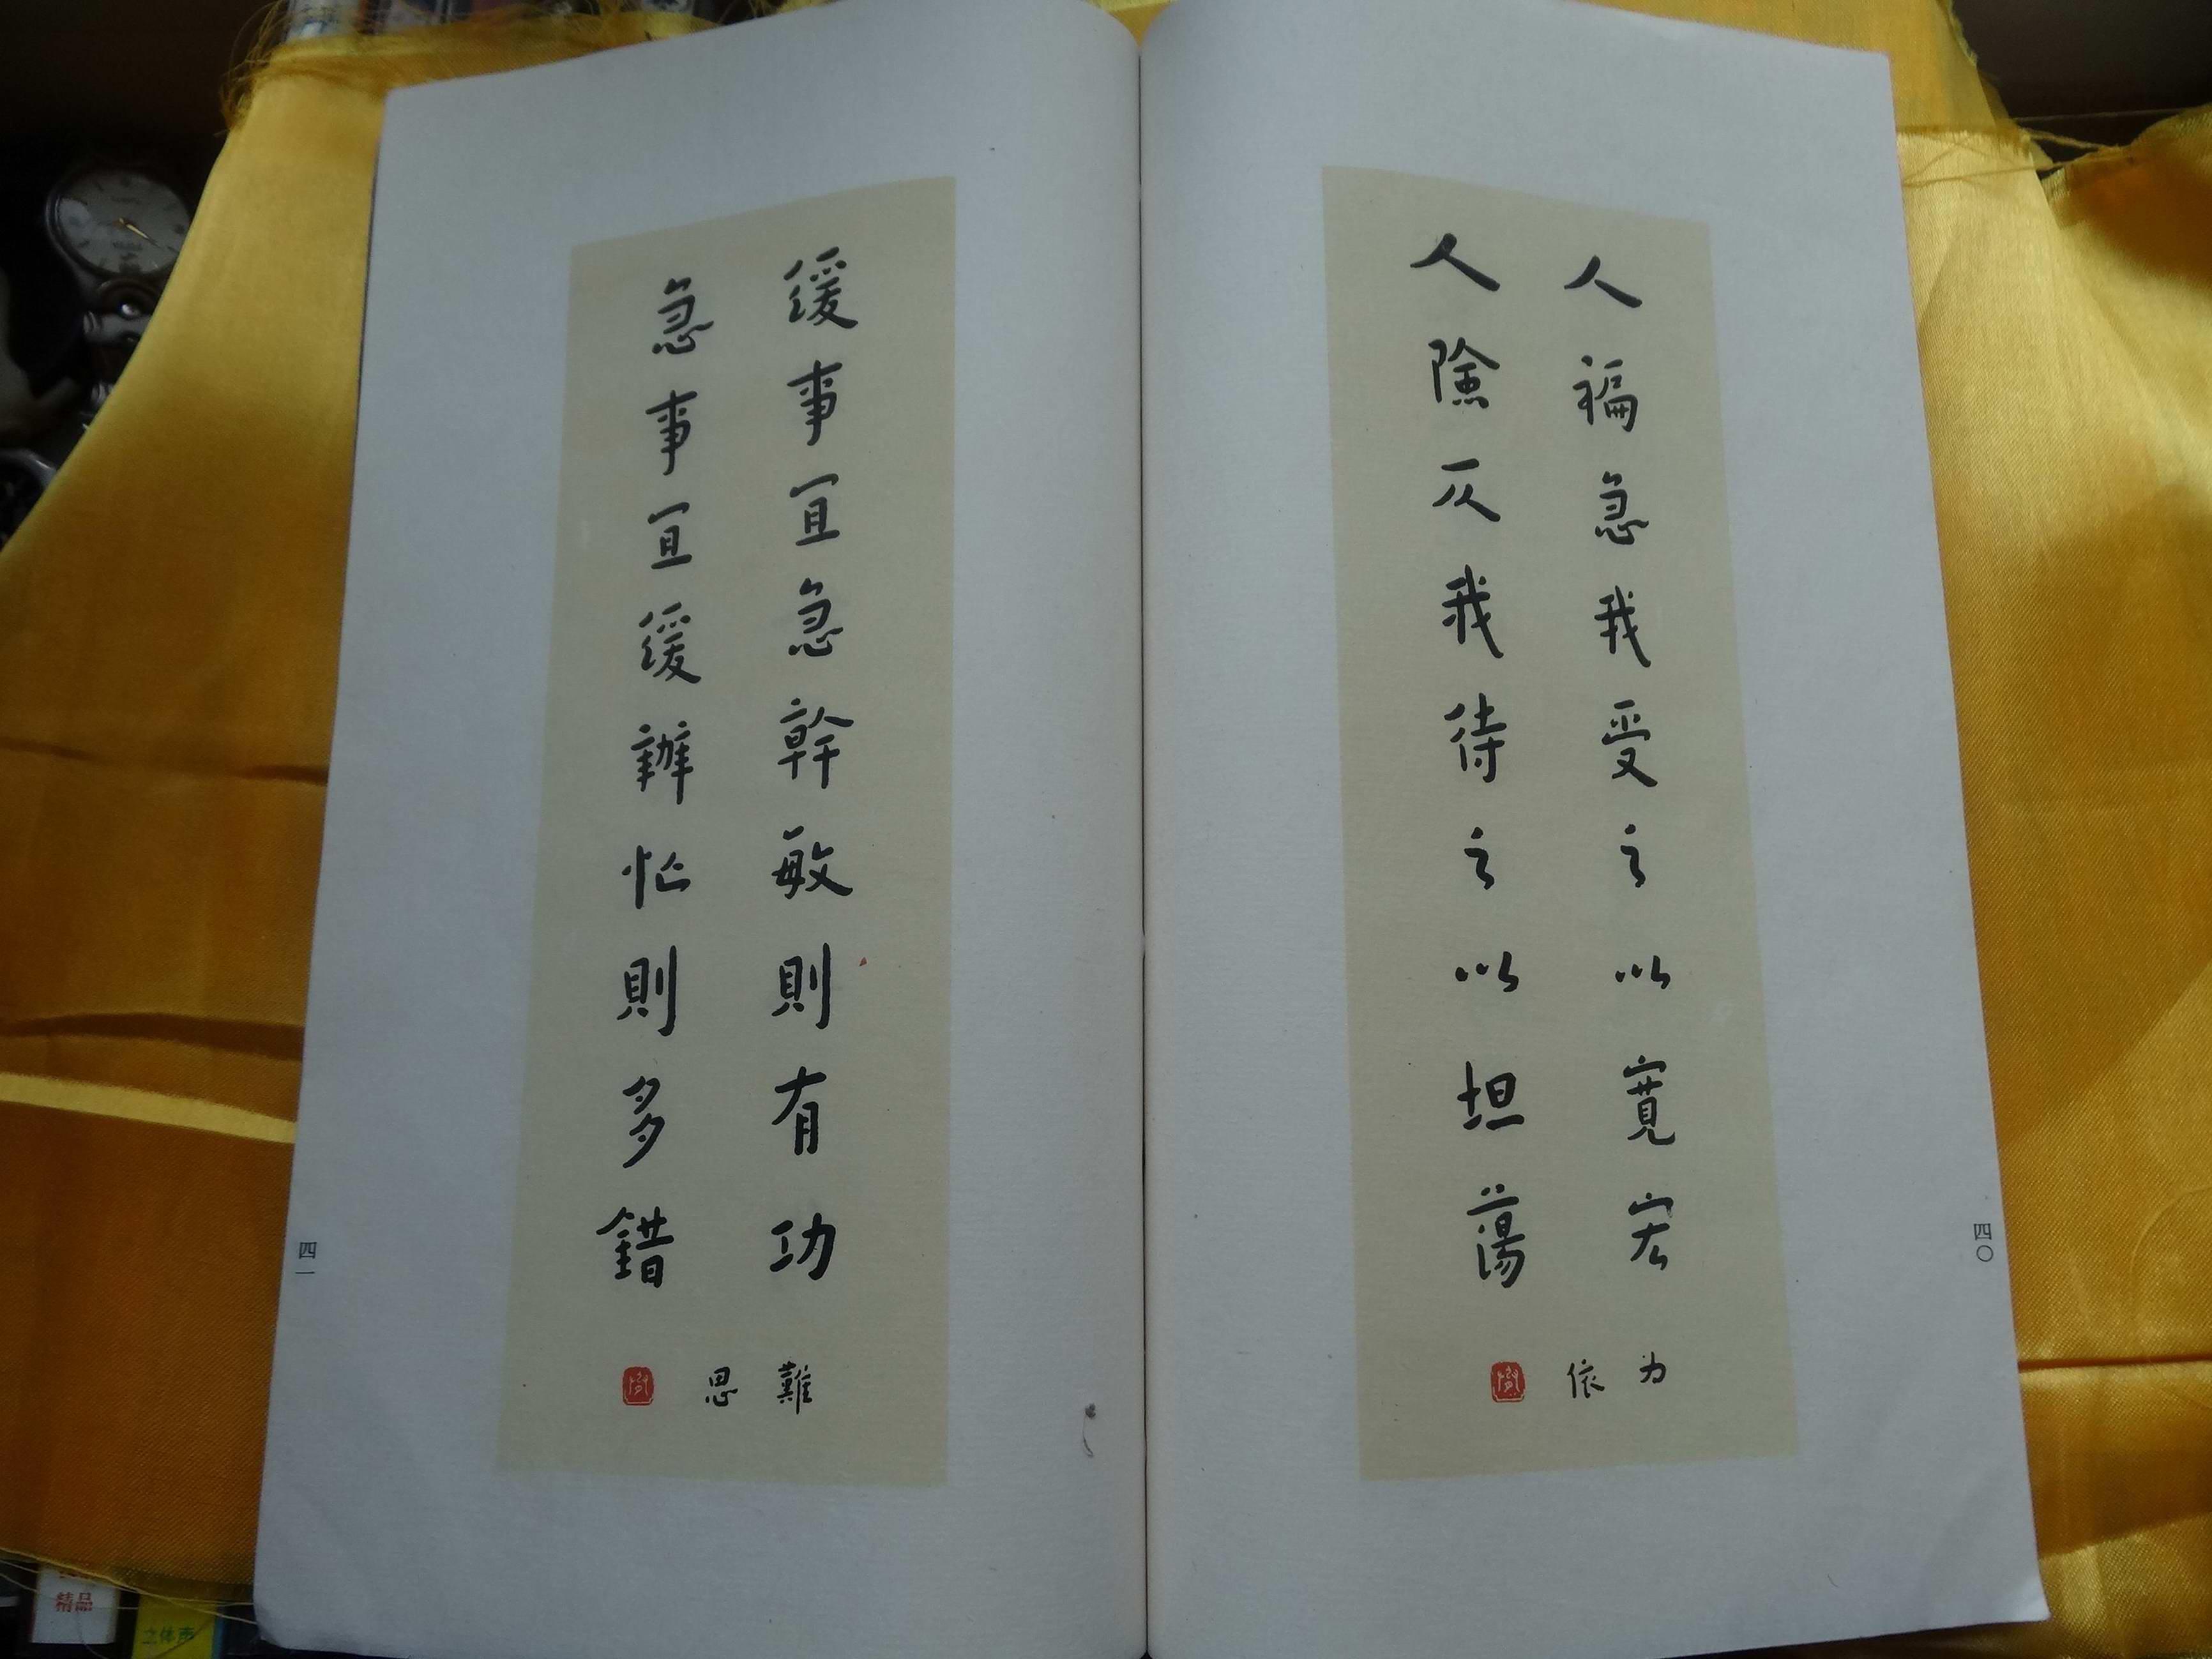 人褊急我受之以寬宏
人險仄我待之以坦蕩
为依
四〇
緩事宜急幹敏則有功
急事宜緩辦忙則多錯
難思
四一
精品
立体声